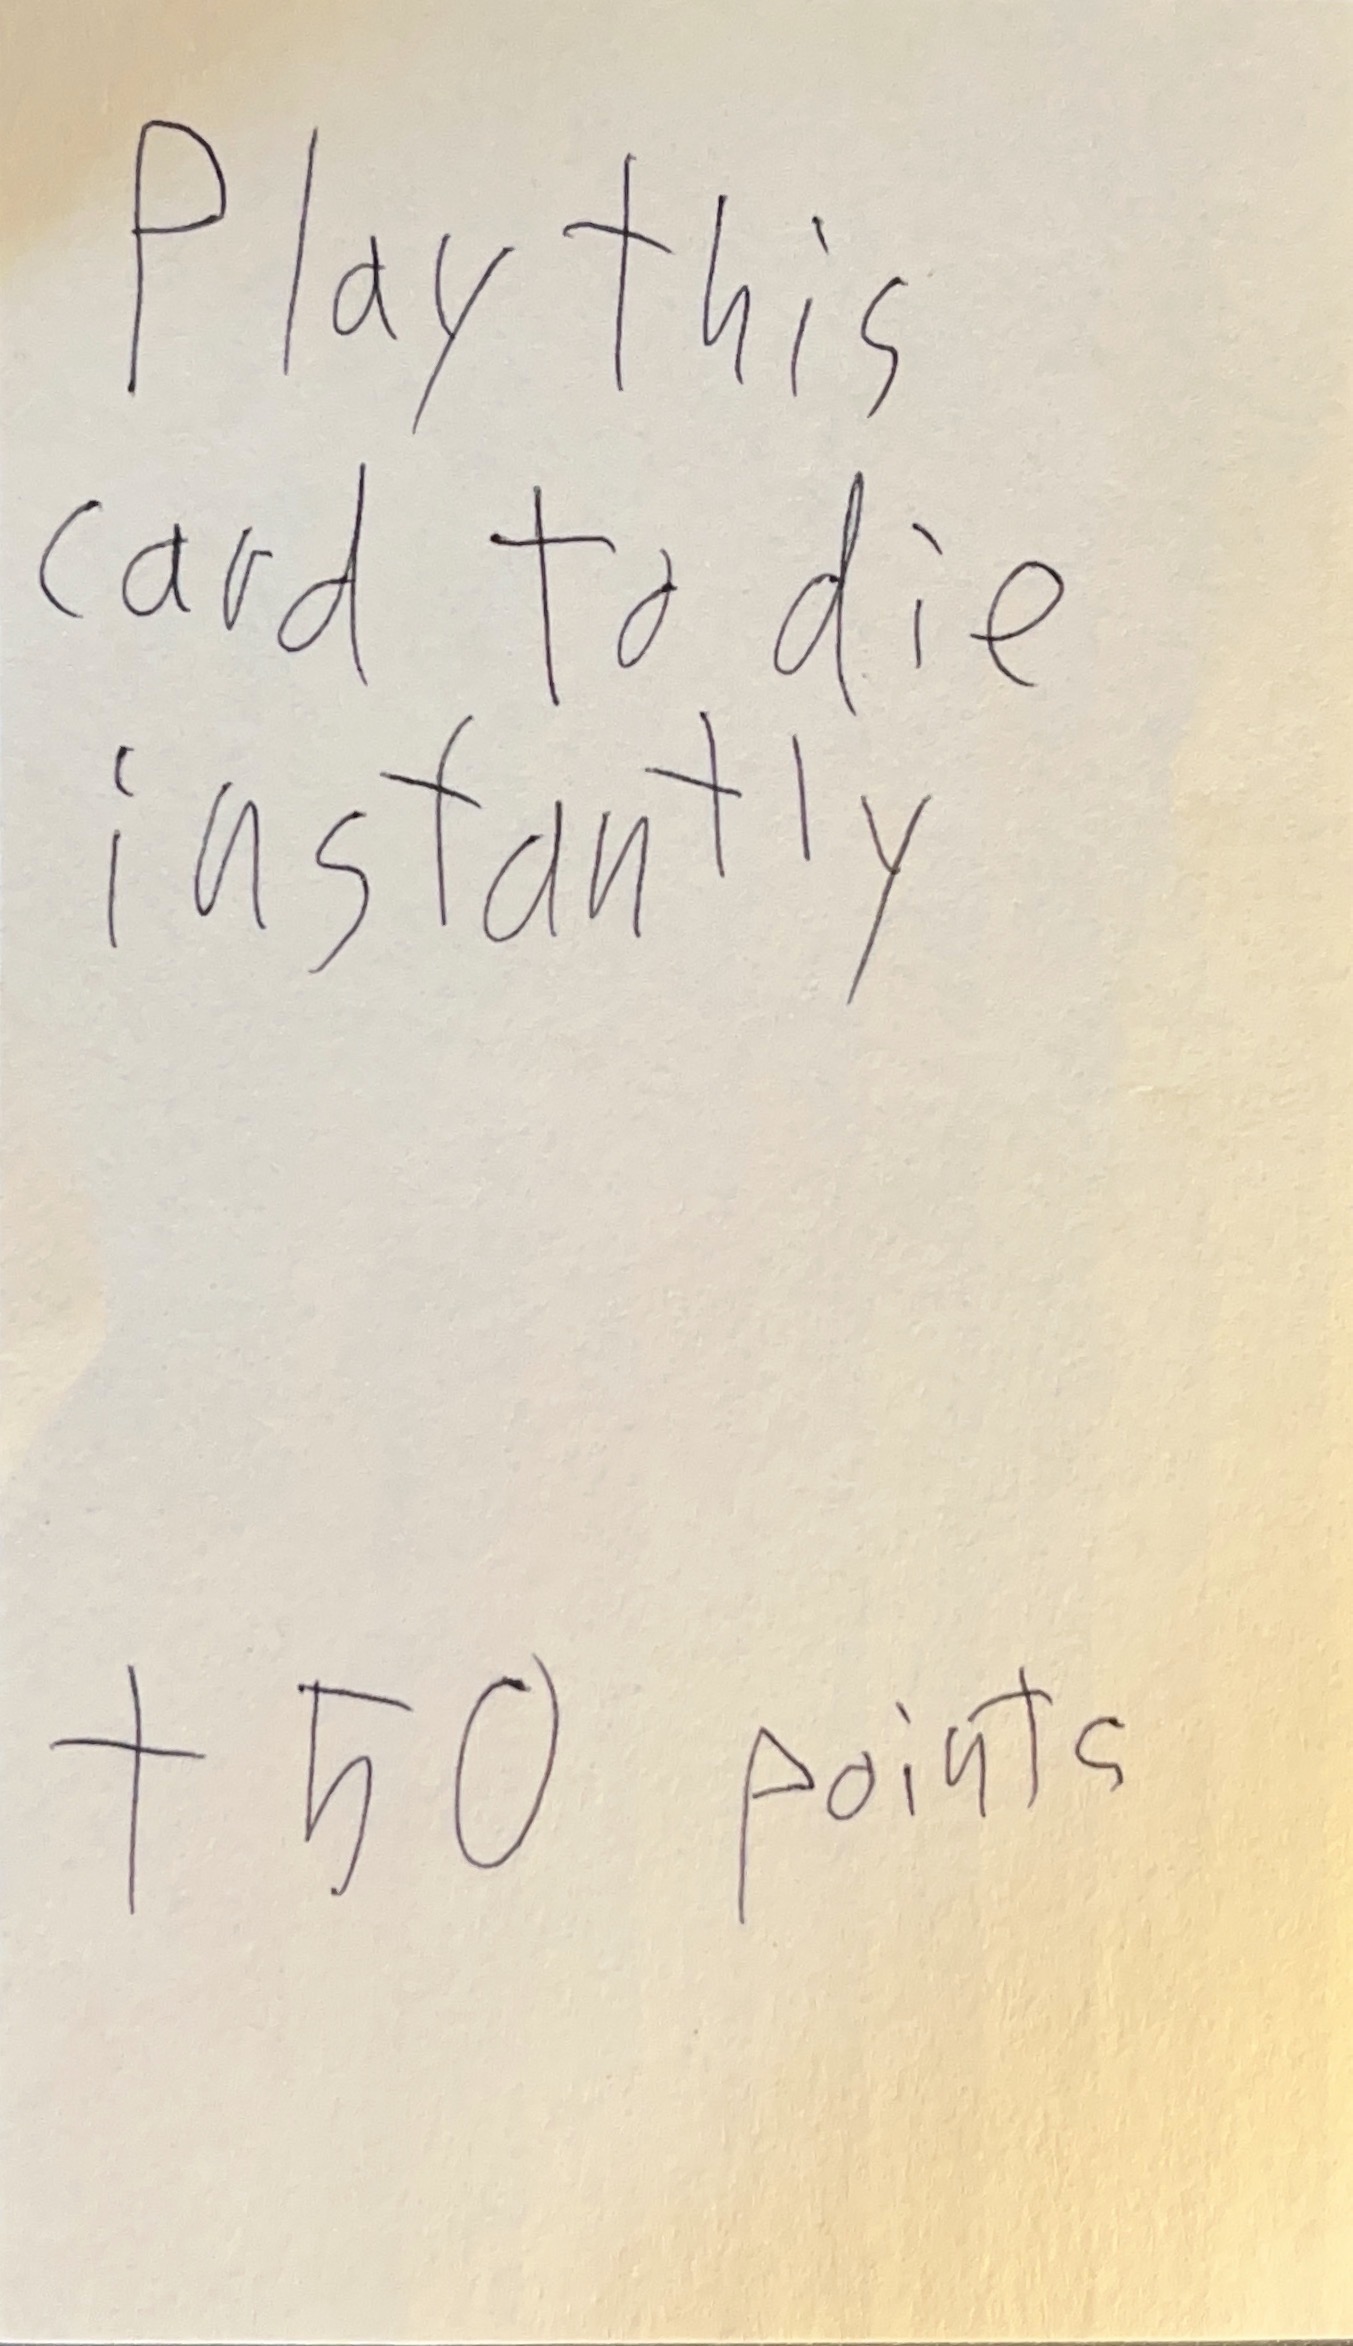 Play this
card to die
instantly
+50 points